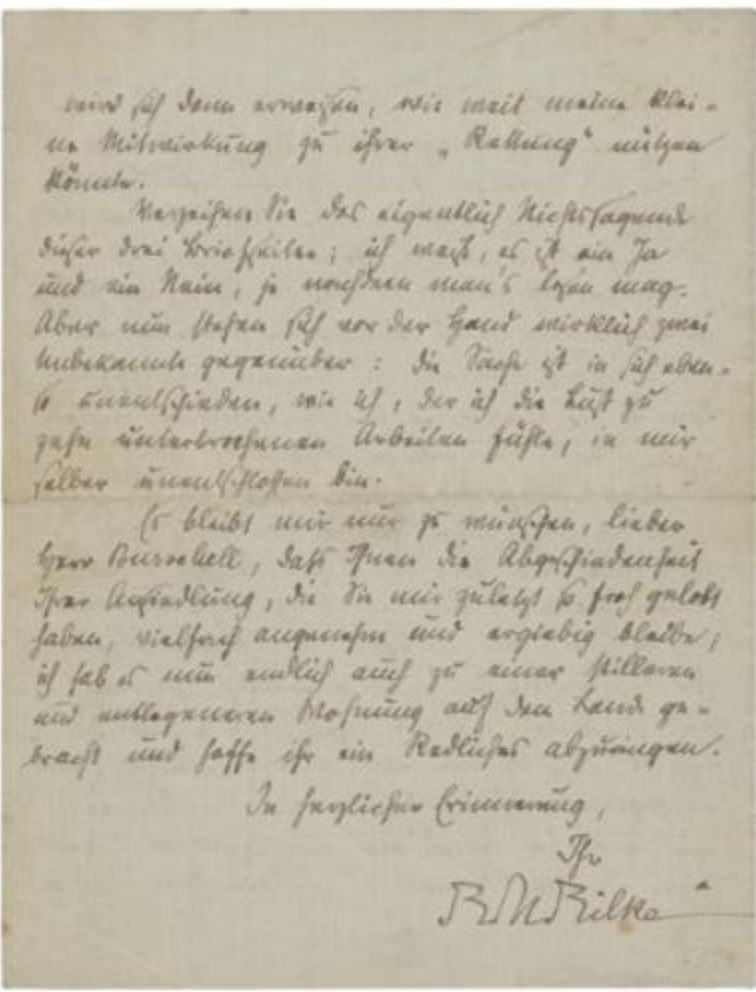 wird sich dann erweisen, wie weit meine klei-
ne Mitwirkung zu ihrer „Rettung“ nützen
könnte.
Verzeihen Sie das eigentlich Nichtssagende
dieser drei Briefseiten; ich weiß, es ist ein Ja
und ein Nein, je nachdem man's lesen mag.
Aber nun stehen sich vor der Hand wirklich zwei
Unbekannte gegenüber: die Sache ist in sich eben-
so unentschieden, wie ich, der ich die Lust zu
zehn unterbrochenen Arbeiten fühle, in mir
selber unentschlossen bin.
Es bleibt mir nur zu wünschen, lieber
Herr Burschell, daß Ihnen die Abgeschiedenheit
Ihrer Ansiedlung, die Sie mir zuletzt so froh gelobt
haben, vielfach angenehm und ergiebig bleibe;
ich hab es nun endlich auch zu einer stilleren
und entlegeneren Wohnung auf dem Lande ge-
bracht und hoffe ihr ein Redliches abzuringen.
In herzlicher Erinnerung,
Ihr
RMRilke